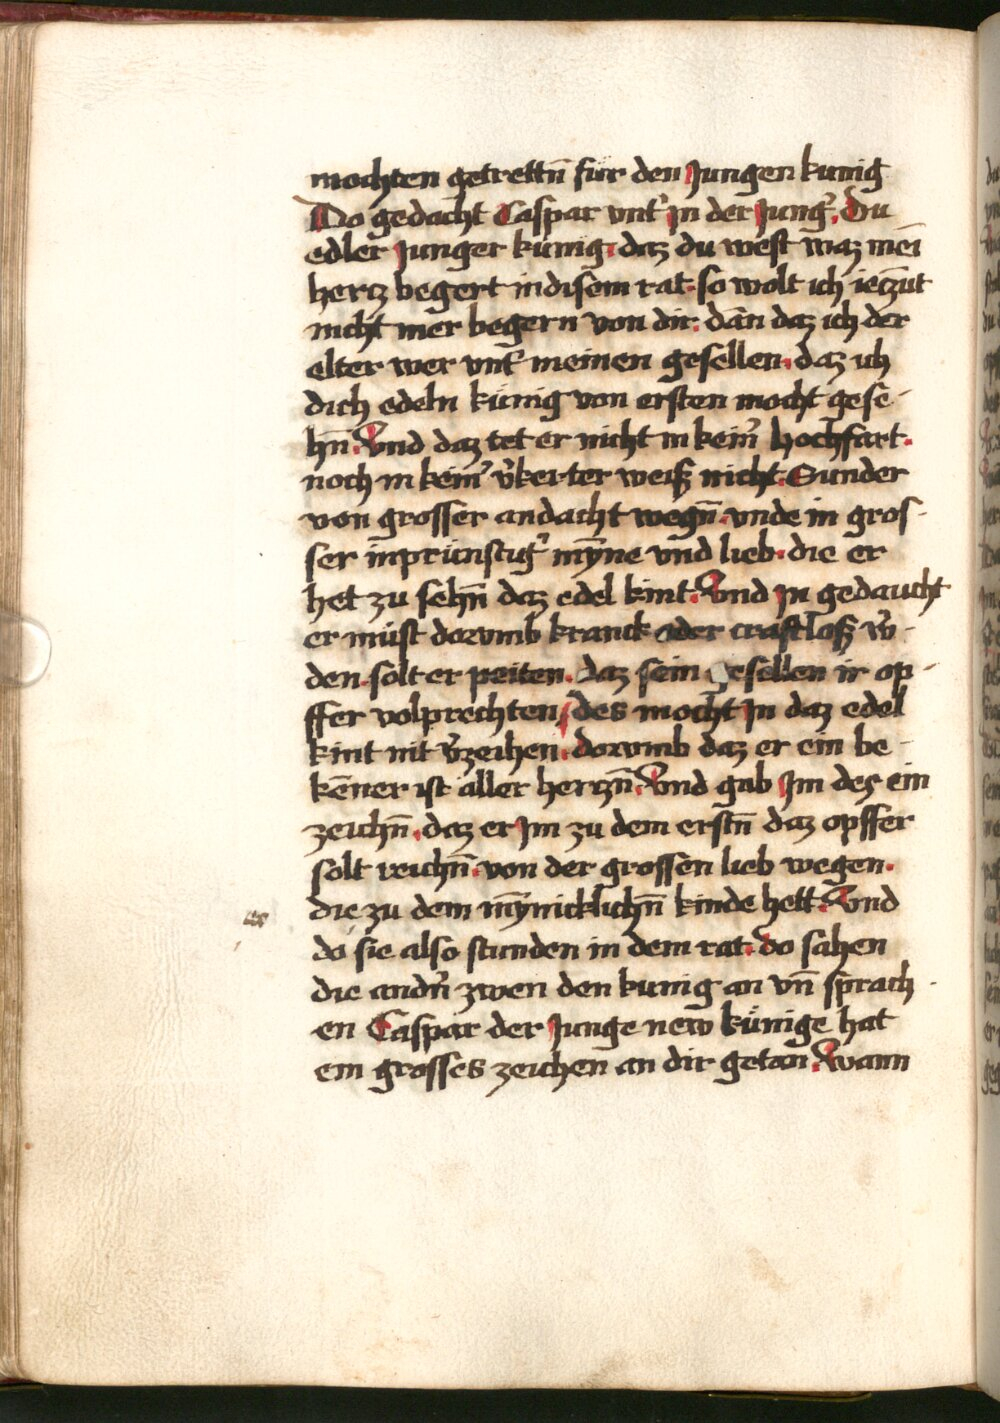 mochten getrettn̄ für den Jungen kunig
Do gedacht Caspar vnt' jn der Jung'. Du
edler Junger künig. daz du west waz mei
hercz begert in disem rat. so wolt ich ieczūt
nicht mer begern von dir. dān daz ich der
elter wer vnt' meinen gesellen. daz ich
dich edeln künig von ersten mocht gese-
hn̄. Vnd daz tet er nicht in keim' hochfart.
noch in keim' v'kerter weiß nicht. Sunder
von grosser andacht wegn̄. vnde in gros-
ser inprünstig' mȳne vnd lieb. die er
het zu sehn̄ daz edel kint. Vnd Jn gedaucht
er müst dorvmb kranck oder craftloß w'-
den. solt er peiten. daz sein gesellen ir op-
ffer volprechten, des mocht Jn daz edel
kint nit v'zeihen. dorvmb daz er ein be-
kēner ist aller herczn̄. Vnd gab Jm des ein
zeichn̄. daz er Jm zu dem erstn̄ daz opffer
solt reichn̄. von der grossen lieb wegen.
er
die zu dem mȳnicklichn̄ kinde hett. Vnd
do sie also stunden in dem rat. Do sahen
die andn̄ zwen den kunig an vn̄ sprach-
en Caspar der Junge new künige hat
ein grosses zeichen an dir getan. Wann